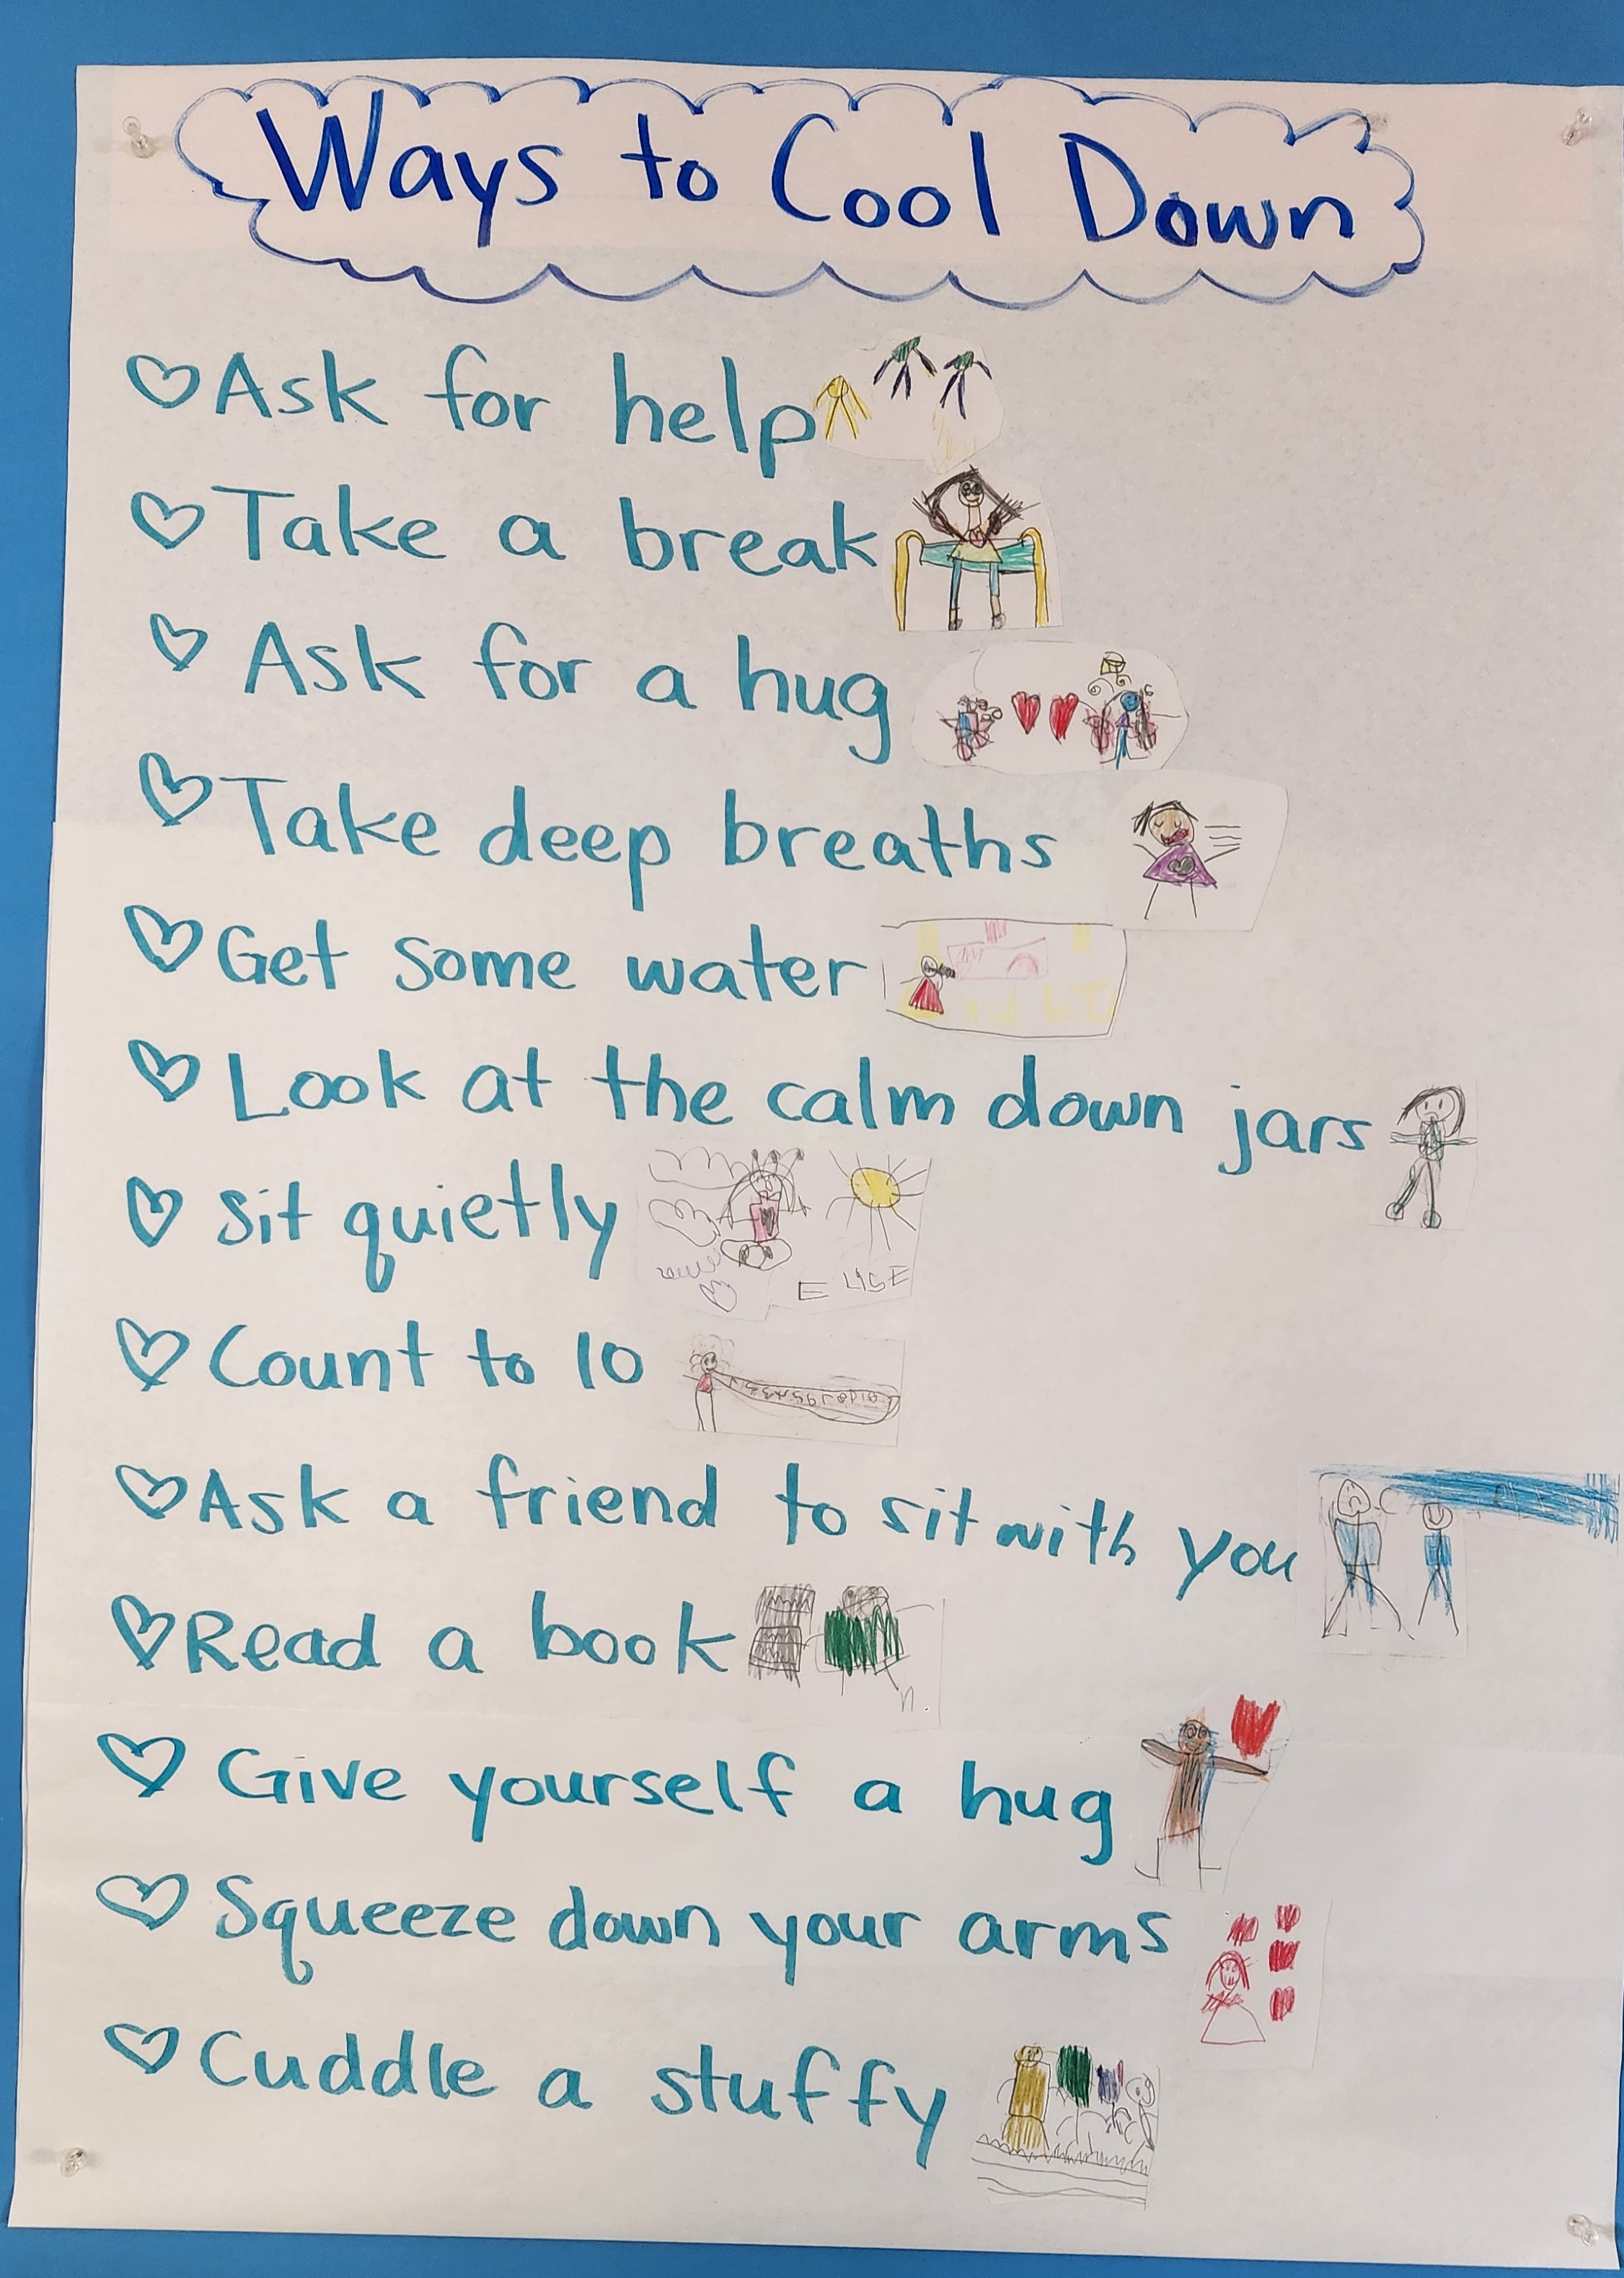 Ways to Cool Down
Ask for help
Take a break
Ask for a hug
Take deep breaths
Get some water
Look at the calm down jars
Sit quietly
Count to 10
Ask a friend to sit with you
Read a book
Give yourself a hug
Squeeze down your arms
Cuddle a stuffy